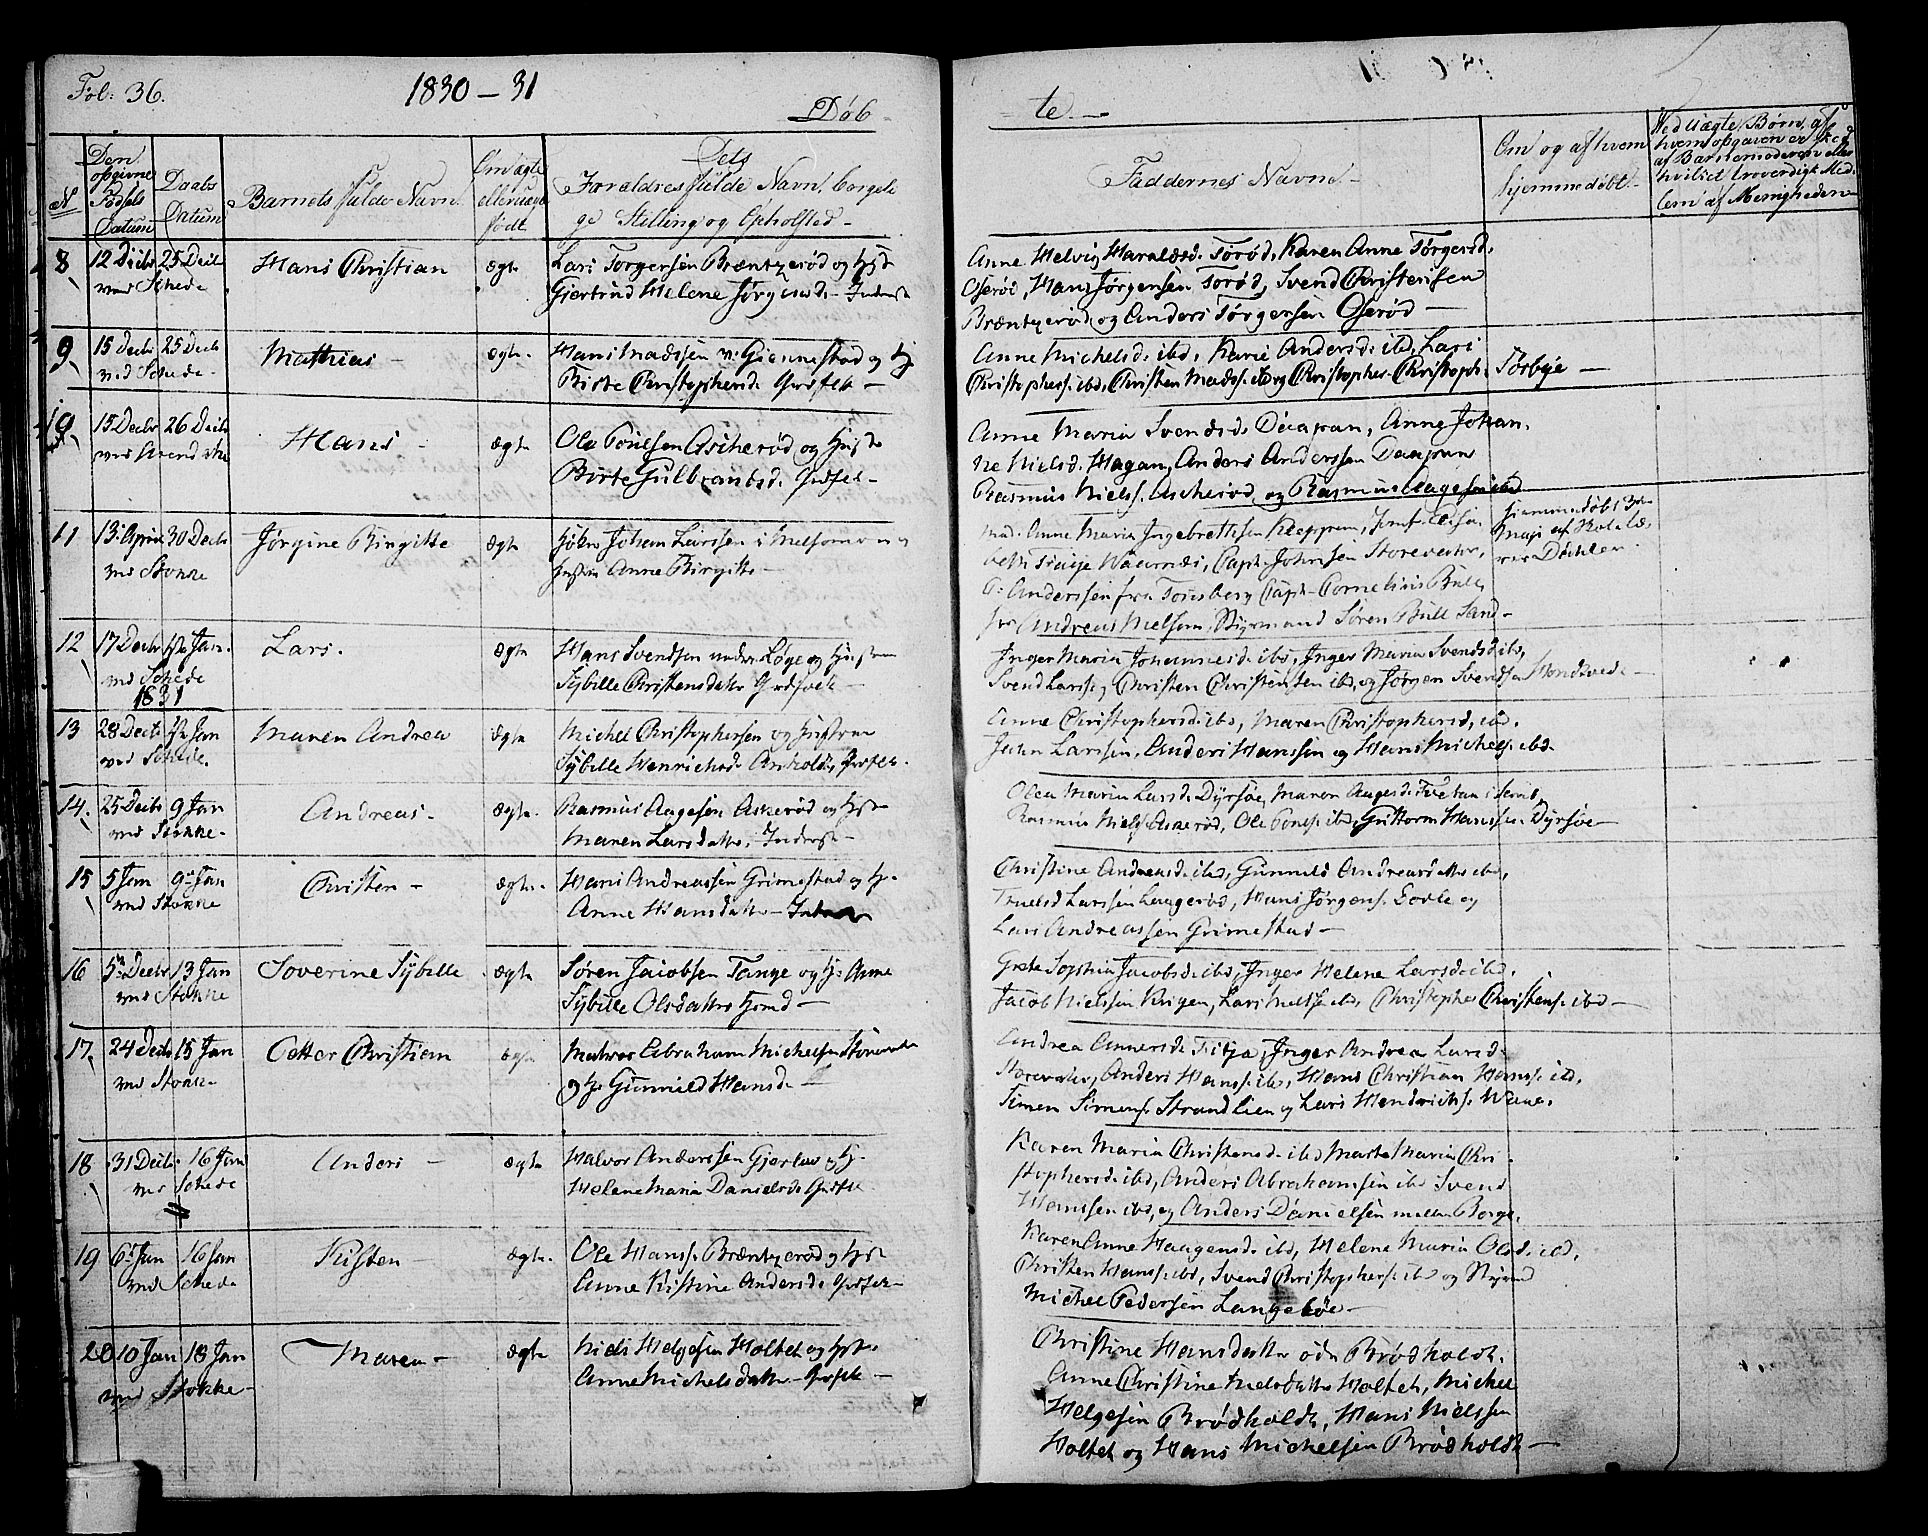 Fol: 36.
1830 - 31
Døb
te. -
No
Den opgivne Fødsels Datum
Daabs Datum
Barnets fulde Navn.
Om ægte eller uægte født
Dets
Forældres fulde Navn, borgeli
ge Stilling og Opholsted -
Faddernes Navne -
Om og af hvem
hjemmedøbt -
Ved Uægte Børn, af
hvem opgaven er skeed
af Barnemoderen eller
hvilket troværdigt Med-
lem af Menigheden -
8 12 Decbr 25 Decbr Hans Christian ægte Lars Torgersen Bræntzerød og hst
ved Schede Giertrud Helene Jørgensd. - Inderst
Anne Helvig Haraldsd. Torød, Karen Anne Torgersd.
Oserød, Hans Jørgensen Torød, Svend Christensen
Bræntzerød og Anders Torgersen Oserød -
9 15 Decbr 25 Decbr Mathias - ægte. Hans Madssen Giennestad og hj
ved Schede - Birte Christophersd. Grdfolk -
Anne Michelsd. ibd, Karie Andersd. ibd, Lars
Christophers. ibd, Christen Madss. ibd og Christopher Christoph. Torbye -
10 15 Decbr 26 Decbr Hans - ægte Ole Poulsen Ascherød og hust
ved Arendske Birte Gulbrantsd. Grdfolk -
Anne Maria Svendsd. Daapan, Anne Johan,
ne Nielsd. Hagan, Anders Anderssen Daapan
Rasmus Niels. Ascherød og Rasmus Aagesen ibd
11 13 April 30 Decbr Jørgine Birgitte ægte Johan Larssen i Melsom
ved Stokke hustru Anne Birgitte -
Mad. Anne Maria Ingebrethsen Kleppan, Jomf. Elisa
Capt. Johnsen Storevahr,
Anderssen fra Tønsberg Capt. Cornelius Bull,
Andreas Melsom, Styrmand Søren Bull Sand -
hjemmedøbt 3
Maji af
12 17 Decbr Jan. Lars. ægte Hans Svendsen under Løge og hustrue
ved Schede Sybille Christensdatter Grdfolk
1831
Inger Maria Johannesd. ibd, Inger Maria Svendsd. ibd,
Svend Larss, Christen Christensen ibd, og Jørgen Svends.
13 28 Decbr Jan Maren Andrea ægte Michel Christophersen og hustrue
ved Schede. Sybille Henrichsd. Arnholdt, Grdfolk -
Anne Christophersd. ibd, Maren Christophersd. ibd.
John Larssen, Anders Hanssen og Hans Michels. ibd -
14. 25 Decbr 9 Jan Andreas - ægte. Rasmus Aagesen Askerød og hst
ved Stokke - Maren Larsdatter, Inderst -
Olea Maria Larsd. Dyrsøe, Maren Aagesd.
Rasmus Niels. Askerød, Ole Pouls. ibd, Guttorm Hanss. Dyrsøe -
15 5 Jan 9 Jan Christen - ægte - Hans Andreassen Grimestad og h
ved Stokke Anne Hansdatter - Inderst
Christine Andreasd. ibd, Gunnild Andreasdatter ibd,
Truels Larssen Laagerød, Hans Jørgens. og
Lars Andreassen Grimestad -
16 5 Decbr 13 Jan Soverine Sybille ægte Søren Jacobsen Tange og h. Anne
ved Stokke Sybille Olsdatter -
Grete Sophia Jacobsd. ibd, Inger Helene Larsd. ibd,
Jacob Nielsen Krigen, Lars Niels. ibd, Christopher Christens. ibd -
17. 24 Decbr 15 Jan Oetter Christian ægte Halvor Abraham Michelsen Storevahr
ved Stokke og h. Gunnild Hansd. -
Andrea Andersd. Titja, Inger Andrea Larsd.
Storevahr, Anders Hans. ibd, Hans Christian Hans. ibd,
Simen Simens. Strandlien og Lars Hendrichs.
18 31 Decbr 16 Jan Anders - ægte Halvor Anderssen Gjerløv og h.
ved Schede Helene Maria Danielsd. Grdfolk
Karen Maria Christensd. ibd Marte Maria Chri-
stophersd. ibd, Anders Abrahamsen ibd Svend
Hanssen ibd, og Anders Danielsen mellem Borge,
19 6 Jan 16 Jan Kisten - ægte. Ole Hans. Bræntzerød og hst
ved Schede Anne Kistine Andersd. Grdfolk -
Karen Anne Haagensd. ibd, Helene Maria Olsd. ibd,
Christen Hans. ibd, Svend Christophers. ibd og
Michel Pedersen Langebøe -
20 10 Jan 18 Jan Maren - ægte Niels Helgesen Holtet og hst.
ved Stokke - Anne Michelsdatter - Grdfolk -
Christine Hansdatter Brødholdt.
Anne Christine Nielsdatter Holtet, Michel
Helgesen Brødholdt, Hans Nielssen
Holtet og Hans Michelsen Brødholdt -